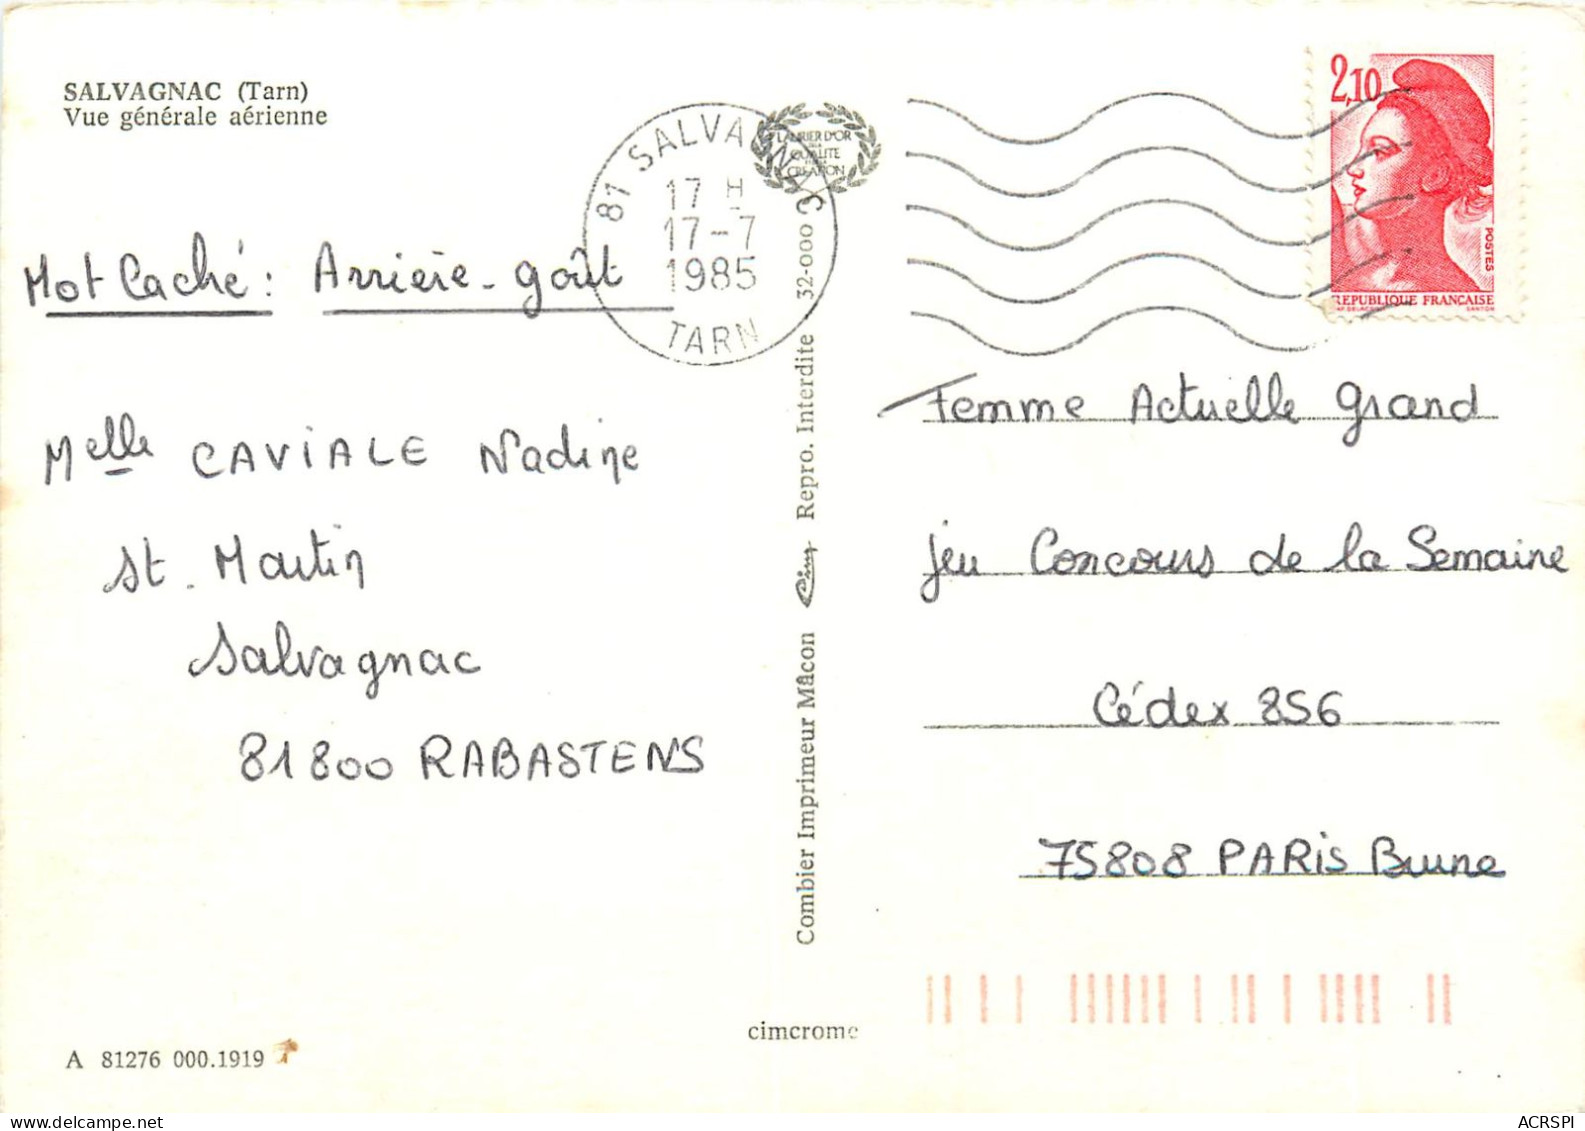 SALVAGNAC (Tarn)
Vue générale aérienne
81 SALVAGNAC
17 H
17-7
1985
TARN
LAURIER D'OR
DE LA
QUALITE
CREATION
2,10
POSTES
REPUBLIQUE FRANÇAISE
GANDON
Mot Caché : Arrière-goût
Melle CAVIALE Nadine
St. Martin
Salvagnac
81800 RABASTENS
Combier Imprimeur Mâcon Cim Repro. Interdite 32-000
Femme Actuelle Grand
jeu Concours de la Semaine
Cédex 856
75808 PARIS Brune
cimcrome
A 81276 000.1919
ACRSPI